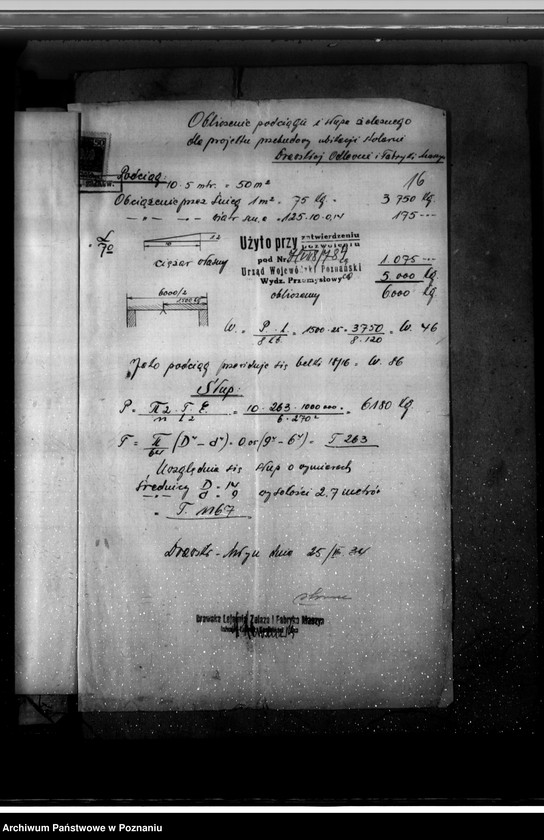 Obliczenie podciągu i słupa żelaznego
dla projektu przebudowy ubikacji stolarni
Drawskiej Odlewni i Fabryki Maszyn
Podciąg:
10 . 5 mtr. = 50 m²
16
Obciążenie przez śnieg 1 m² = 75 kg. =
3 750 kg.
wiatr = 125.10.0,14
175 ---
12
Użyto przy zatwierdzeniu
pozwoleniu
pod Nr.
Urząd Wojewódzki Poznański
Wydz. Przemysłowy
ciężar własny
1.075 ---
5 000 kg.
obliczony
6000 kg.
6000/2
1500 kg
W. = P . L / 8 kb = 1500.25 = 3750 / 8.120 = W. 46
Jako podciąg przewiduje się belki 18/16 = W. 86
Słup.
P = π2 . T . E / n l2 = 10 . 263 . 1000 000 = / 6 . 270² = 6180 kg.
T = π / 64 (D⁴ - d⁴) = (9⁴ - 6⁴) = T 263
Uwzględnia się słup o wymiarach
średnicy D = 14
d = 9 wysokości 2,7 metrów
= T. 1167
Drawski - Młyn dnia 25/ 34
Drawska Lejarnia Żelaza i Fabryka Maszyn
Archiwum Państwowe w Poznaniu